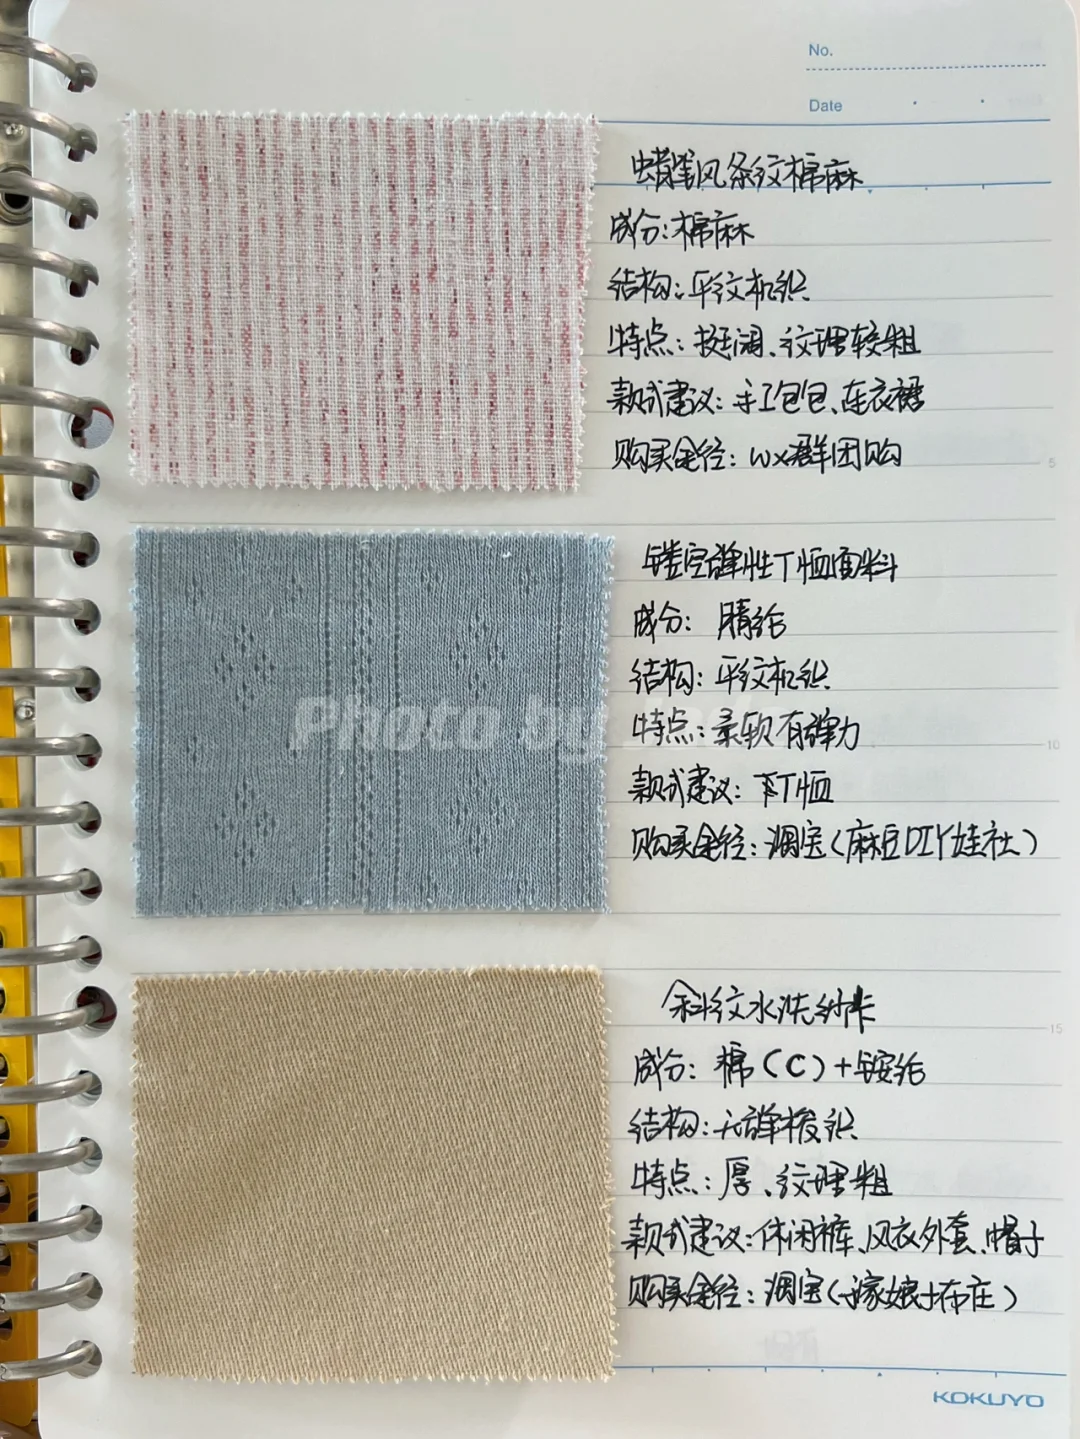 No.
Date
蜡笔风条纹棉麻
成分:棉麻
结构:平纹机织
特点:挺阔、纹理较粗
款式建议:手工包包、连衣裙
购买途径:wx群团购
5
镂空弹性T恤面料
成分: 腈纶
结构:平纹机织
特点:柔软有弹力
10
款式建议:T恤
购买途径:淘宝(麻豆DIY娃社)
Photo by
斜纹水洗纱卡
15
成分:棉(C)+氨纶
结构:无弹梭织
特点:厚、纹理粗
款式建议:休闲裤、风衣外套、帽子
购买途径:淘宝(家娘布庄)
KOKUYO